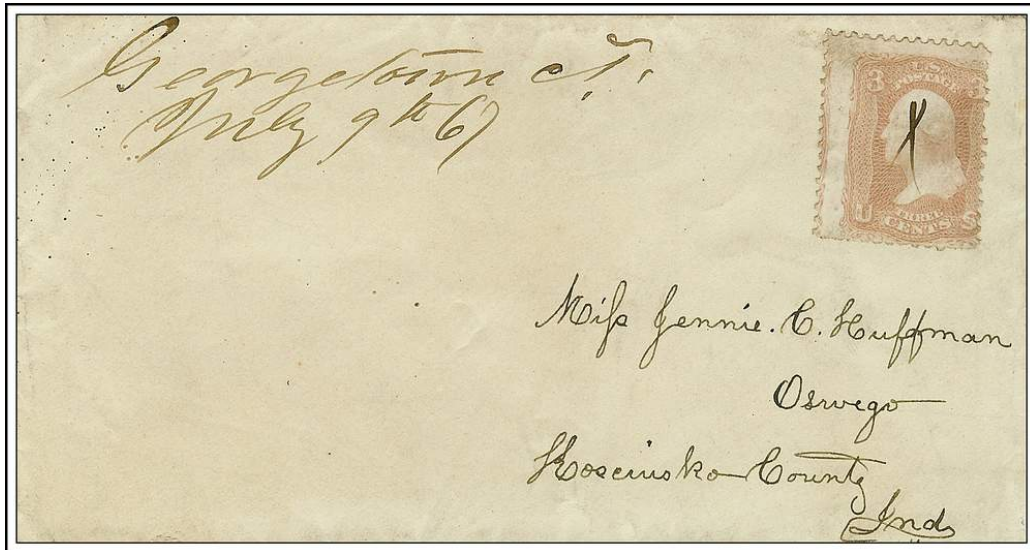 Georgetown C.T.
July 9th 67
U.S.
POSTAGE
3
U S
THREE
CENTS
Miss Jennie. C. Huffman
Oswego
Kosciusko County
Ind